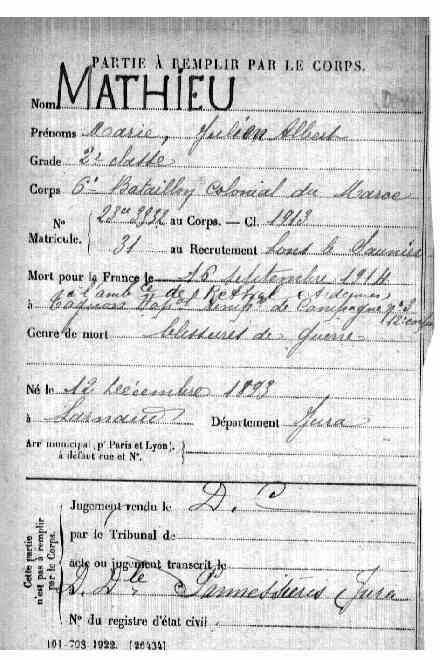 PARTIE À REMPLIR PAR LE CORPS.
Nom MATHIEU
Prénoms Marie, Julien Albert
Grade 2e classe
Corps 6e Bataillon Colonial du Maroc
No 23ce 3932 au Corps. — Cl. 1913
Matricule. 31 au Recrutement Lons le Saunier
Mort pour la France le 16 septembre 1914
à l'ambce de Rethel Ardennes
à Hop. Temp. de Campagne no 4 12e corps
Genre de mort blessures de guerre
Né le 12 Décembre 1893
à Larnaud Département Jura
Arrt municipal (pr Paris et Lyon),
à défaut rue et No.
Cette partie
n'est pas à remplir
par le Corps.
Jugement rendu le D. C
par le Tribunal de
acte ou jugement transcrit le
D. Dte Jura
No du registre d'état civil
101-708-1922. [26434]